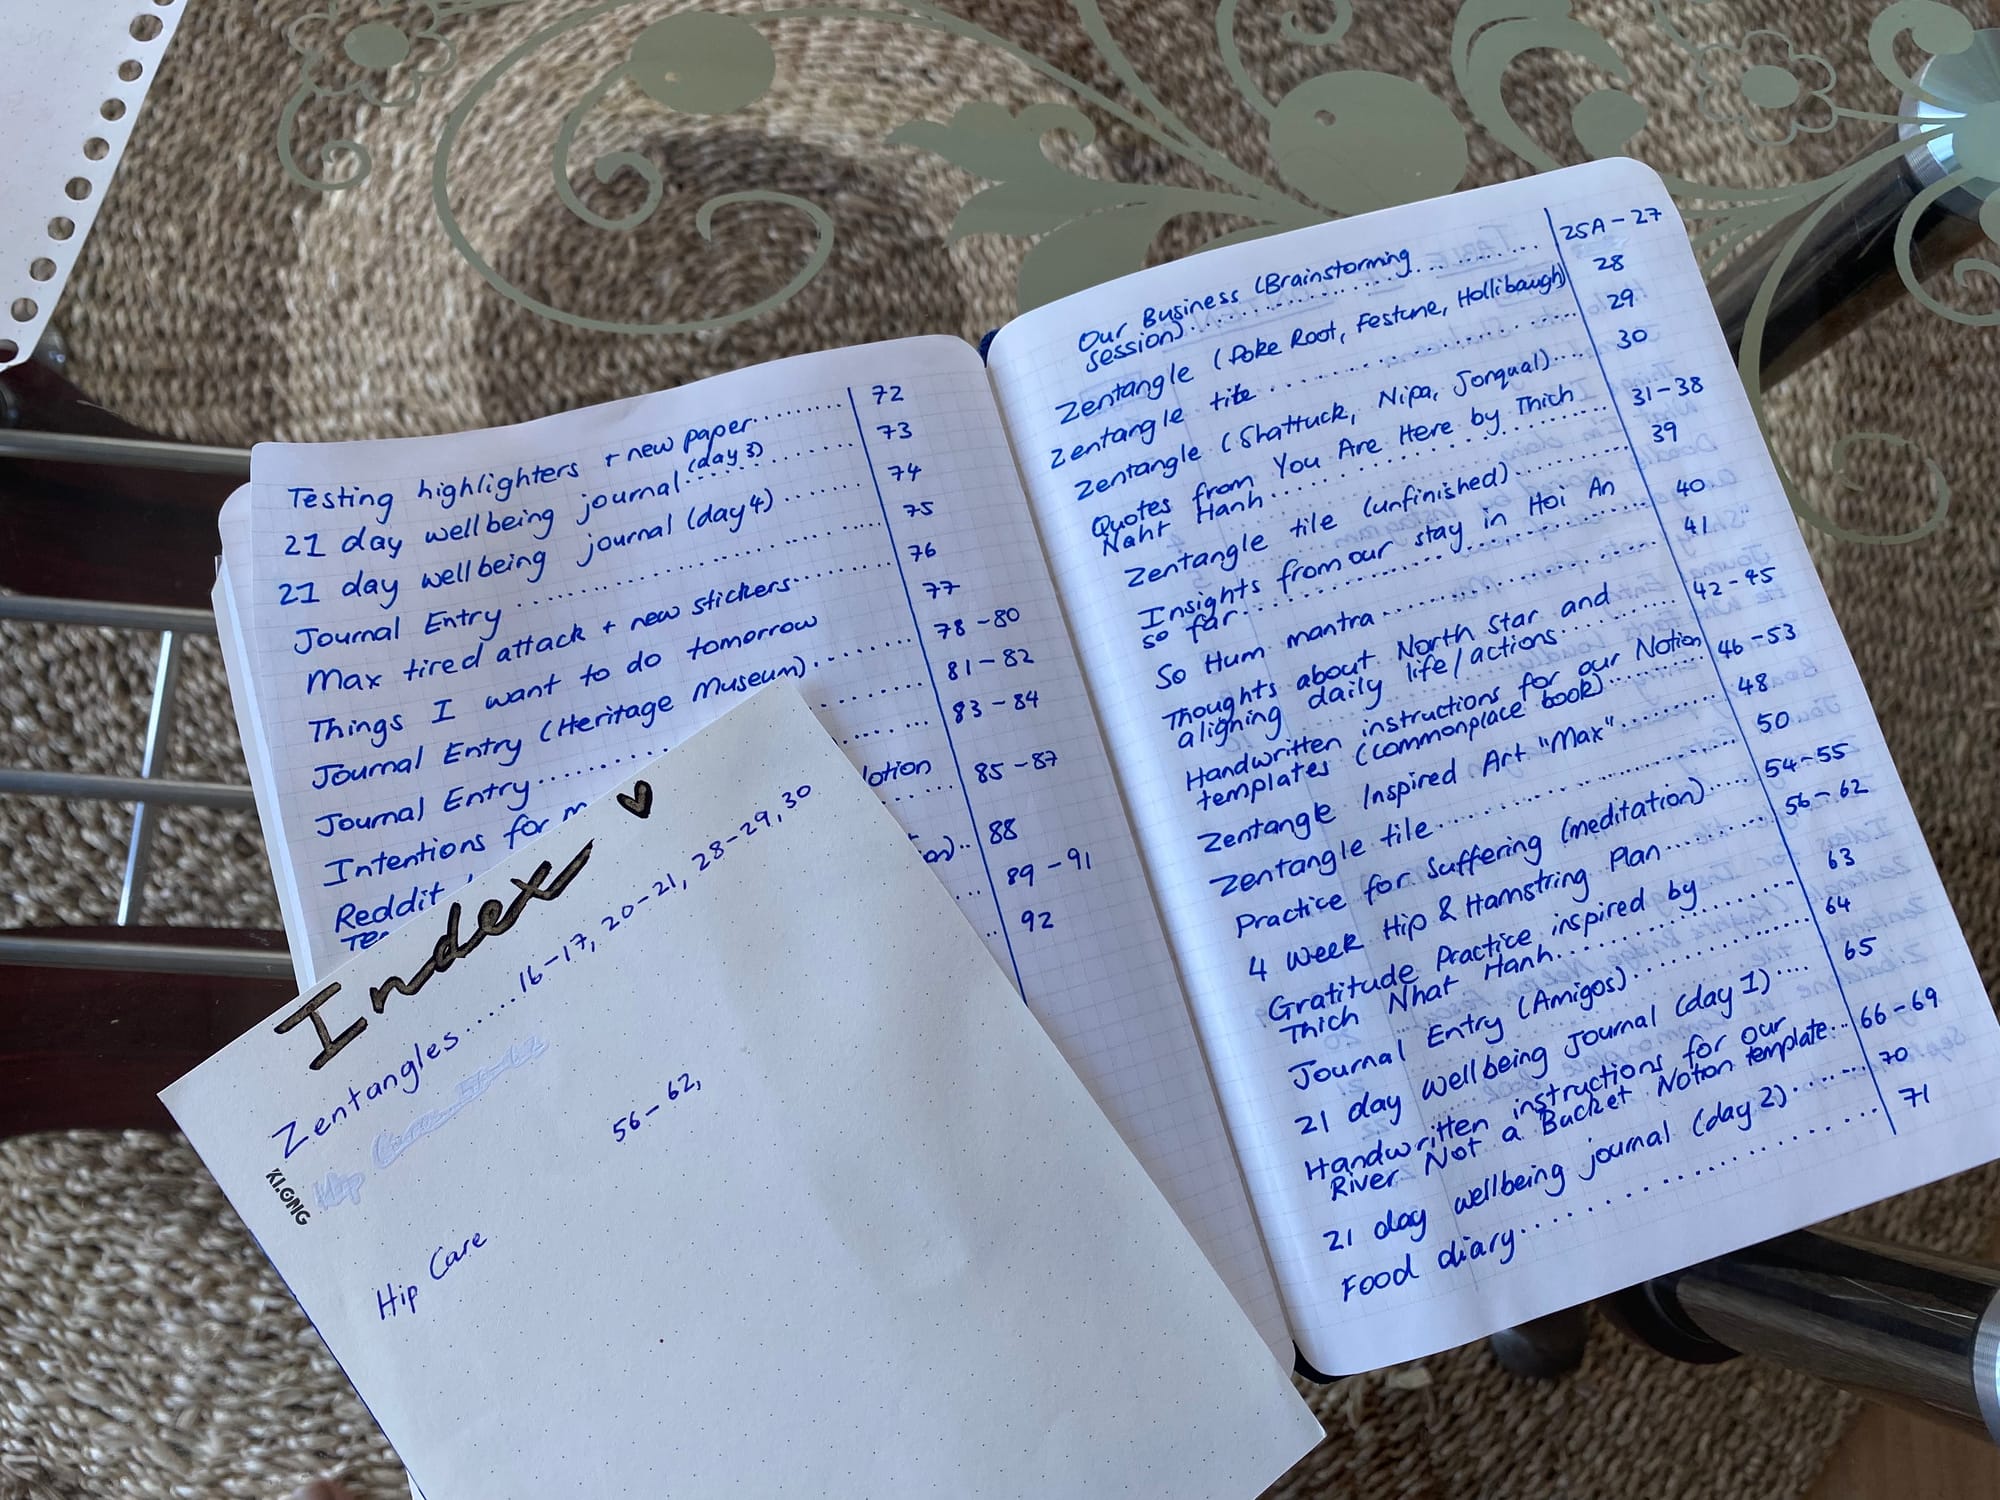 Testing highlighters + new paper......... 72
21 day wellbeing journal (day 3)......... 73
21 day wellbeing journal (day 4)......... 74
Journal Entry......... 75
Max tired attack + new stickers......... 76
Things I want to do tomorrow 77
Journal Entry (Heritage Museum)......... 78-80
Journal Entry......... 81-82
Intentions for 83-84
Reddit
85-87
88
89-91
92
Index
Zentangles......16-17, 20-21, 28-29, 30
56-62,
Hip Care
KLONG
Our Business (Brainstorming
session)......... 25A-27
Zentangle (Poke Root, Festune, Hollibaugh) 28
Zentangle tile......... 29
Zentangle (Shattuck, Nipa, Jonqual).... 30
Quotes from You Are Here by Thich
Naht Hanh......... 31-38
Zentangle tile (unfinished)......... 39
Insights from our stay in Hoi An
so far......... 40
So Hum mantra......... 41
Thoughts about North Star and
aligning daily life/actions......... 42-45
Handwritten instructions for our Notion
templates (commonplace book)......... 46-53
Zentangle Inspired Art "Max"......... 48
Zentangle tile......... 50
Practice for Suffering (meditation)..... 54-55
4 Week Hip & Hamstring Plan......... 56-62
Gratitude Practice inspired by
Thich Nhat Hanh......... 63
Journal Entry (Amigos)......... 64
21 day wellbeing journal (day 1).... 65
Handwritten instructions for our
River Not a Bucket Notion template... 66-69
21 day wellbeing journal (day 2)........ 70
Food diary......... 71